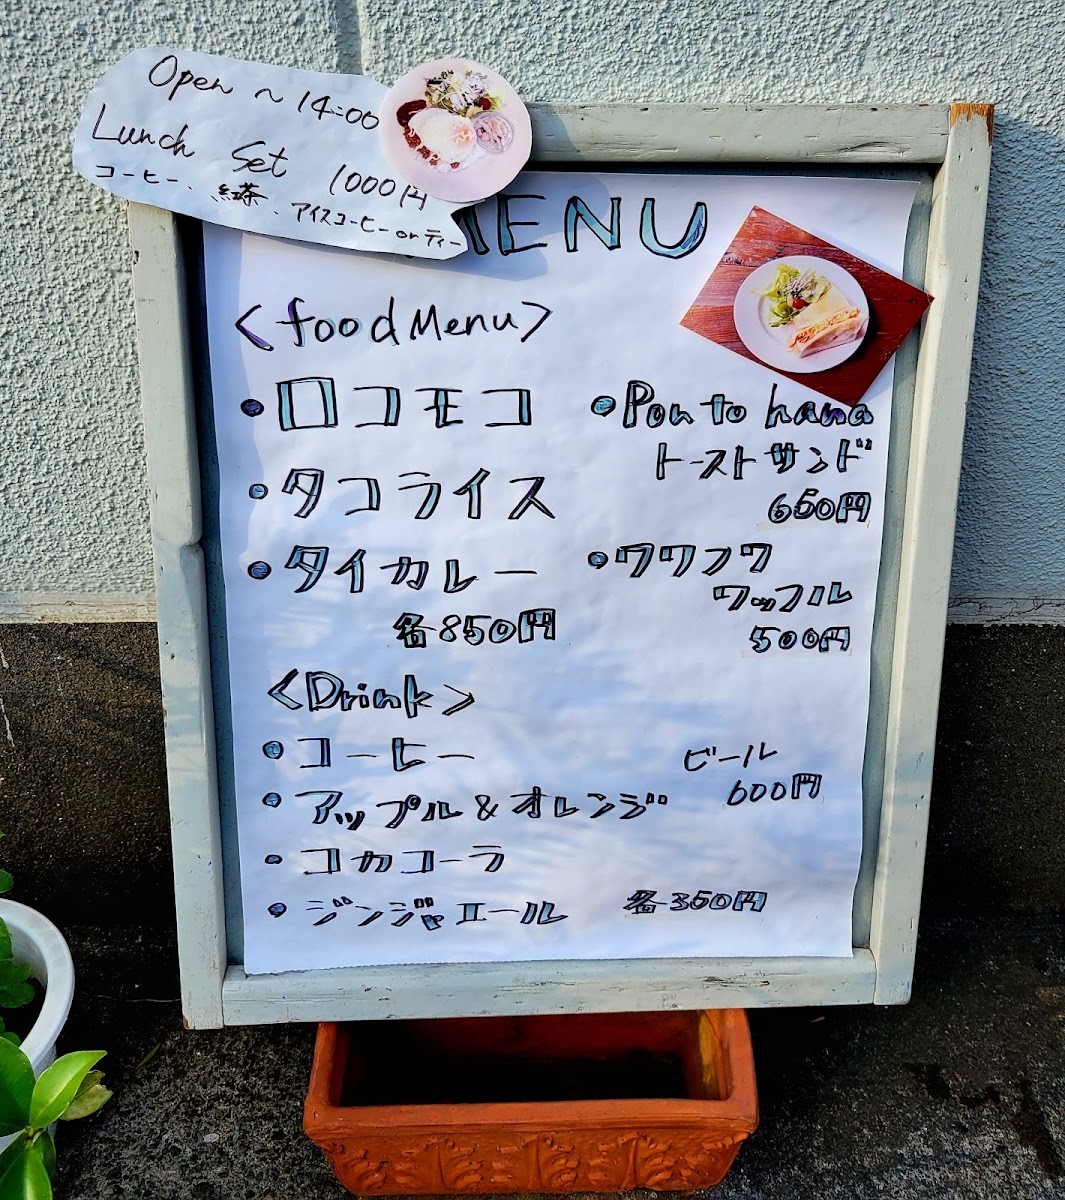 Open ~ 14:00
Lunch Set 1000円
コーヒー、紅茶、アイスコーヒー or ティー
MENU
<food Menu>
・ロコモコ
・タコライス
・タイカレー
各850円
・Pon to hana
トーストサンド
650円
・ワワフワ
ワッフル
500円
<Drink>
・コーヒー
・アップル&オレンジ
・コカコーラ
・ジンジャエール
各350円
ビール
600円